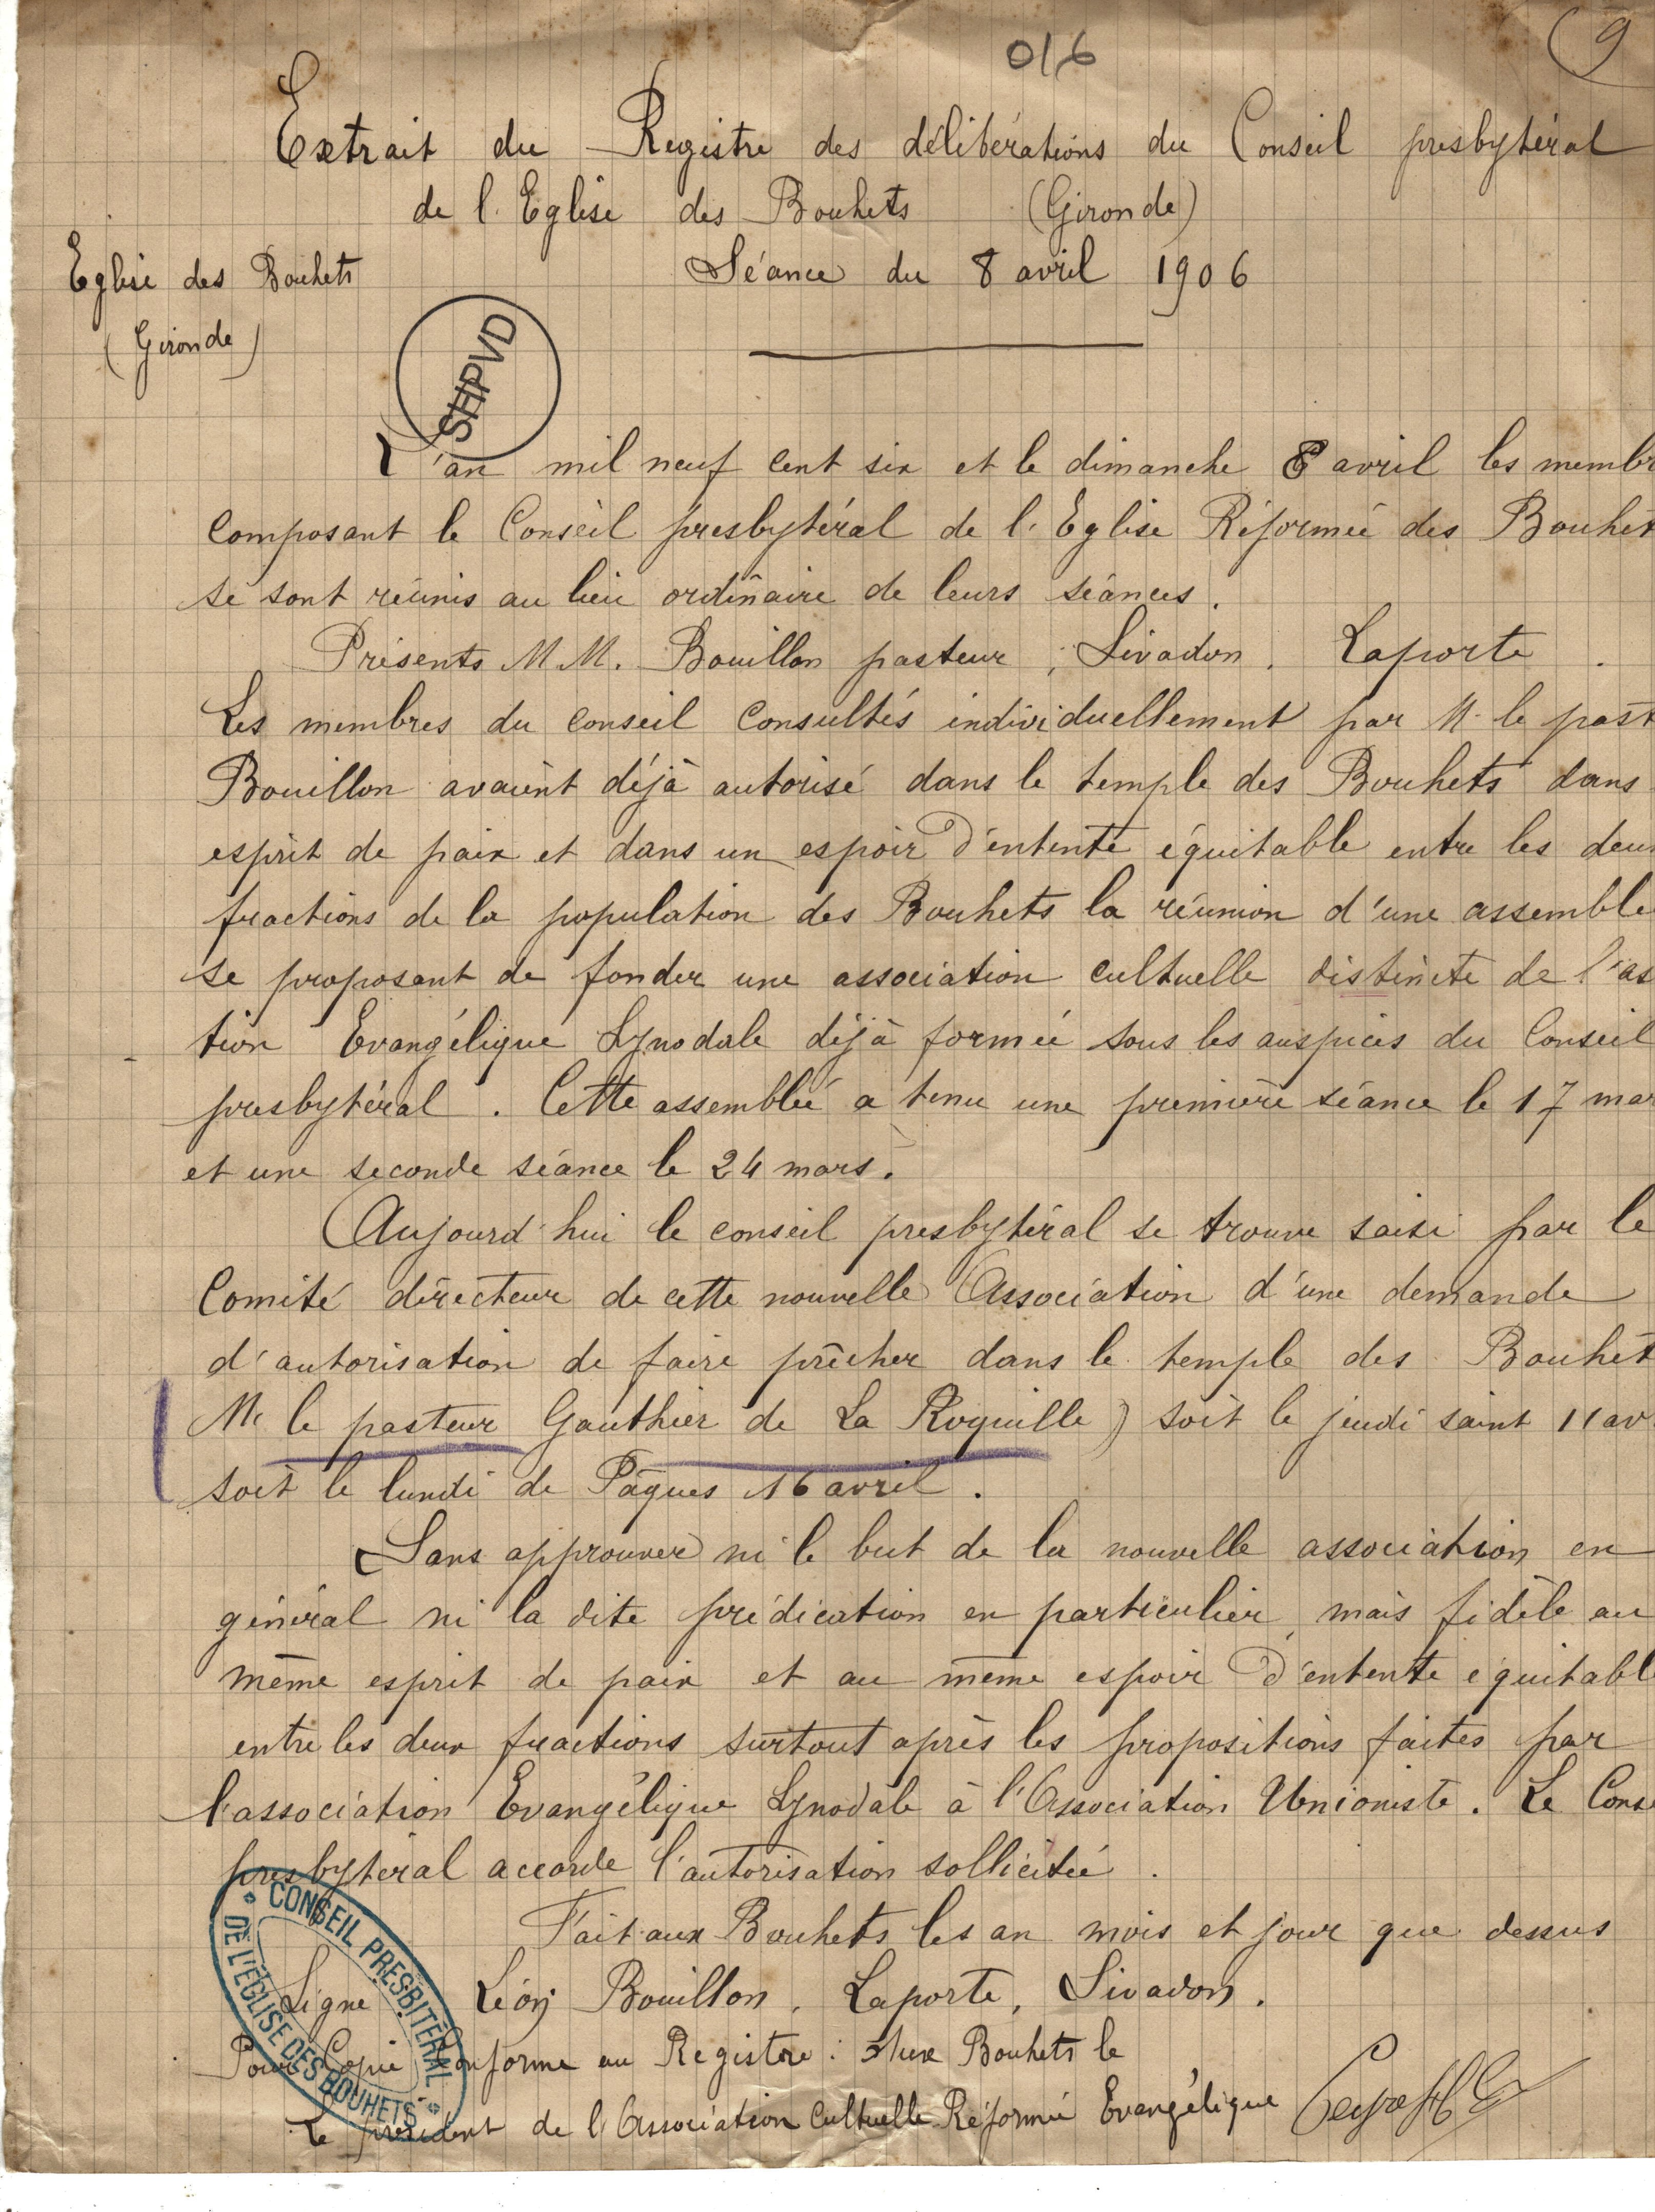 016
9
Extrait du Registre des délibérations du Conseil presbytéral
de l'Eglise des Bouhets (Gironde)
Eglise des Bouhets
Séance du 8 avril 1906
(Gironde)
SHPVD
L'an mil neuf cent six et le dimanche 8 avril les membr
composant le Conseil presbytéral de l'Eglise Réformée des Bouhet
se sont réunis au lieu ordinaire de leurs séances.
Présents MM. Bouillon pasteur, Livadon. Laporte.
Les membres du conseil consultés individuellement par M. le past
Bouillon avaient déjà autorisé dans le temple des Bouhets dans
esprit de paix et dans un espoir d'entente équitable entre les deux
fractions de la population des Bouhets la réunion d'une assemblé
se proposant de fonder une association cultuelle distincte de l'as
tion Evangélique Synodale déjà formée sous les auspices du Conseil
presbytéral. Cette assemblée a tenu une première séance le 17 mar
et une seconde séance le 24 mars.
Aujourd'hui le conseil presbytéral se trouve saisi par le
Comité directeur de cette nouvelle Association d'une demande
d'autorisation de faire prêcher dans le temple des Bouhet
Mr le pasteur Gauthier de La Roquille) soit le jeudi saint 11 av
soit le lundi de Pâques 16 avril.
Sans approuver ni le but de la nouvelle association en
général ni la dite prédication en particulier, mais fidèle au
même esprit de paix et au même espoir d'entente équitabl
entre les deux fractions surtout après les propositions faites par
l'association Evangélique Synodale à l'Association Unioniste. Le Conse
presbytéral accorde l'autorisation sollicitée.
Fait aux Bouhets les an mois et jour que dessus
Signé Léon Bouillon. Laporte, Livadon.
Pour Copie conforme au Registre : Aux Bouhets le
Le président de l'Association Cultuelle Réformée Evangélique
CONSEIL PRESBITÉRAL
DE L'ÉGLISE DES BOUHETS